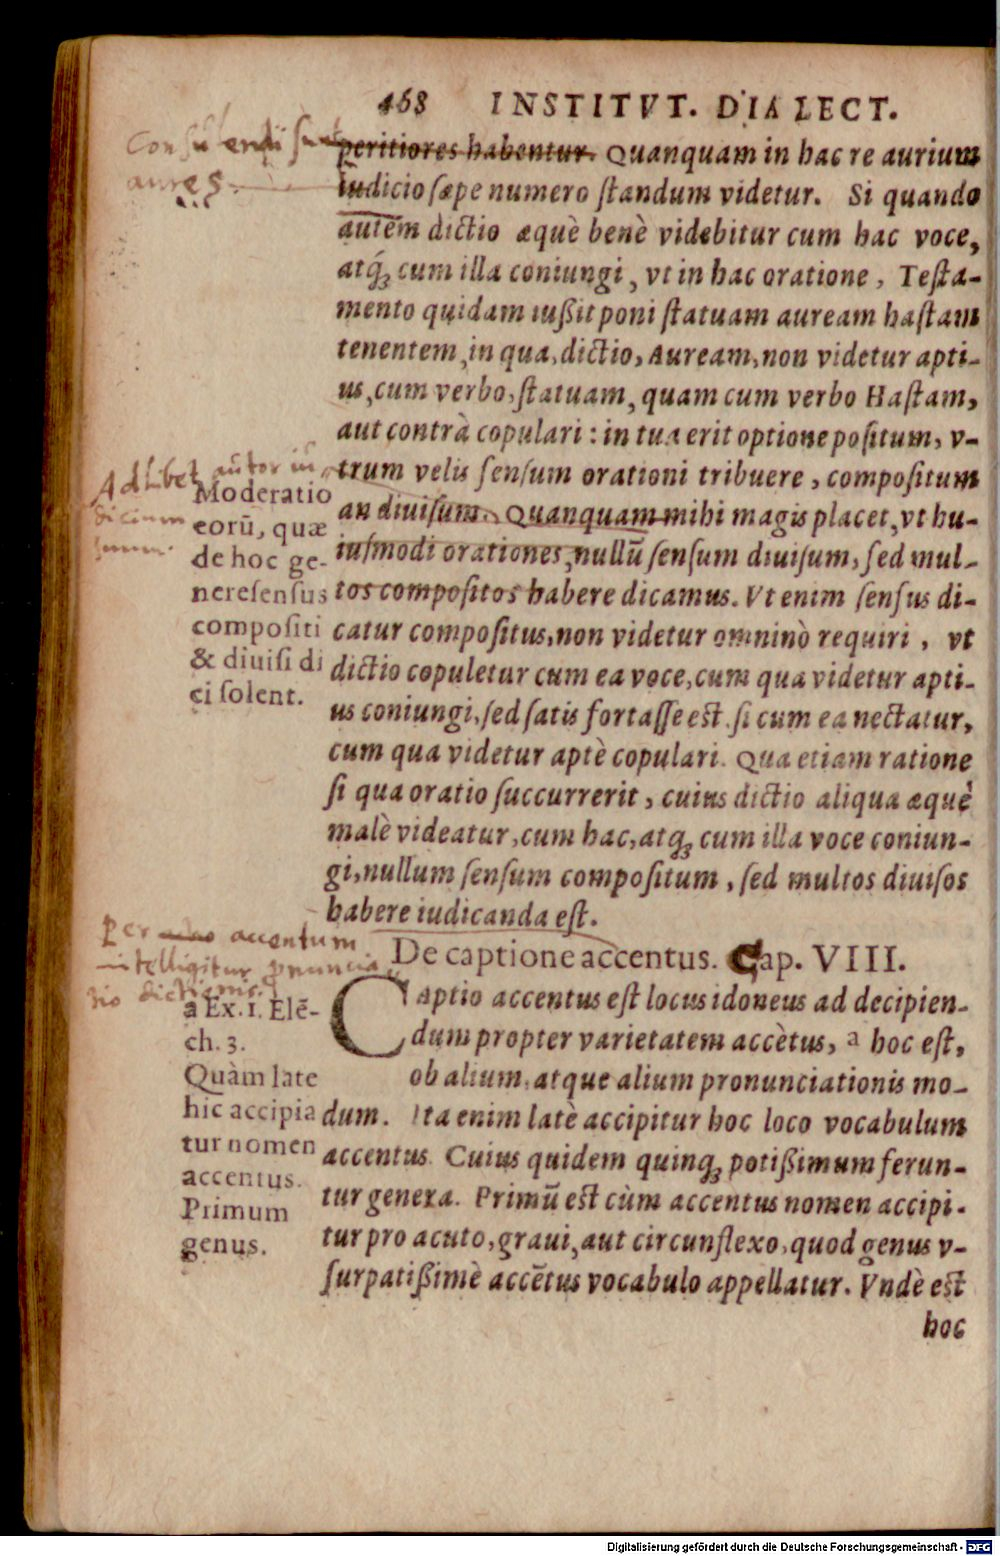 468 INSTITVT. DIALECT.
Consulendi sunt
aures.
peritiores habentur. Quanquam in hac re aurium
iudicio sæpe numero ſtandum videtur. Si quando
autem dictio æquè benè videbitur cum hac voce,
atq́; cum illa coniungi, vt in hac oratione, Teſta-
mento quidam iußit poni ſtatuam auream haſtam
tenentem, in qua, dictio, Auream, non videtur apti-
us, cum verbo, ſtatuam, quam cum verbo Haſtam,
aut contrà copulari: in tua erit optione poſitum, v-
trum velis ſenſum orationi tribuere, compoſitum
an diuiſum. Quanquam mihi magis placet, vt hu-
iuſmodi orationes, nullū ſenſum diuiſum, ſed mul-
tos compoſitos habere dicamus. Vt enim ſenſus di-
catur compoſitus, non videtur omninò requiri, vt
dictio copuletur cum ea voce, cum qua videtur apti-
us coniungi, ſed ſatis fortaſſe eſt ſi cum ea nectatur,
cum qua videtur aptè copulari. Qua etiam ratione
ſi qua oratio ſuccurrerit, cuius dictio aliqua æquè
malè videatur, cum hac, atq; cum illa voce coniun-
gi, nullum ſenſum compoſitum, ſed multos diuiſos
habere iudicanda eſt.
Ad libet autor iu
dicium
suum.
Moderatio
eorū, quæ
de hoc ge-
nere ſenſus
compoſiti
& diuiſi di
ci ſolent.
De captione accentus. Cap. VIII.
Captio accentus eſt locus idoneus ad decipien-
dum propter varietatem accētus, a hoc eſt,
ob alium, atque alium pronunciationis mo-
dum. Ita enim latè accipitur hoc loco vocabulum
accentus. Cuius quidem quinq; potißimum ferun-
tur genera. Primū eſt cùm accentus nomen accipi-
tur pro acuto, graui, aut circunflexo, quod genus v-
ſurpatißimè accētus vocabulo appellatur. Vndè eſt
hoc
Per accentum
intelligitur pnuncia
tio dictionis.
a Ex. 1. Elē-
ch. 3.
Quàm late
hic accipia
tur nomen
accentus.
Primum
genus.
Digitalisierung gefördert durch die Deutsche Forschungsgemeinschaft - DFG